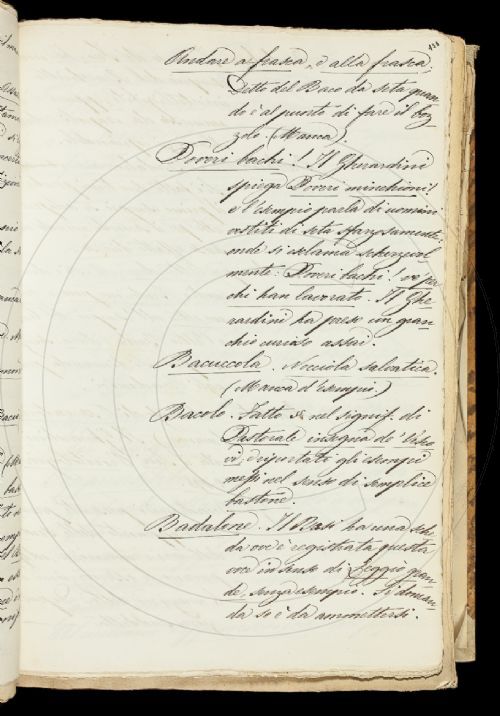 Andare a frasca, o alla frasca.
Detto del Baco da seta quan-
do è al punto di fare il boz-
zolo. (Manca).
Poveri bachi! Il Gherardini
spiega Poveri minchioni!
e l'esempio parla di uomini
vestiti di seta sfarzosamente:
onde si esclama scherzevol
mente: Poveri bachi! ve' per
chi han lavorato. Il Ghe-
rardini ha preso un gran-
chio curioso assai.
Bacuccola. Nocciola salvatica.
(Manca d'esempio.)
Bacolo. Fatto § nel signif. di
Pastorale insegna de' Vesco
vi, rigettati gli esempi
messi nel senso di semplice
bastone.
Badalone. Il Basi ha una sche
da ove è registrata questa
voce in senso di Leggio gran-
de, senza esempio. Si diman-
da se è da ammettersi.